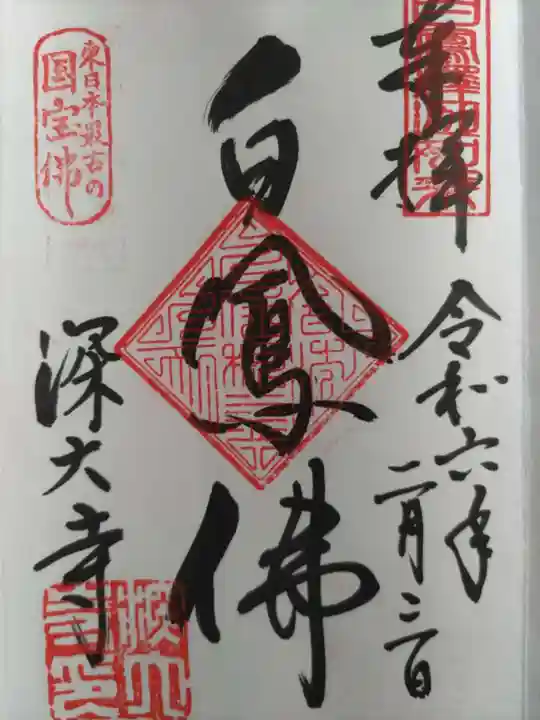 奉拝
令和六年
二月三日
白鳳佛
東日本最古の
国宝佛
深大寺